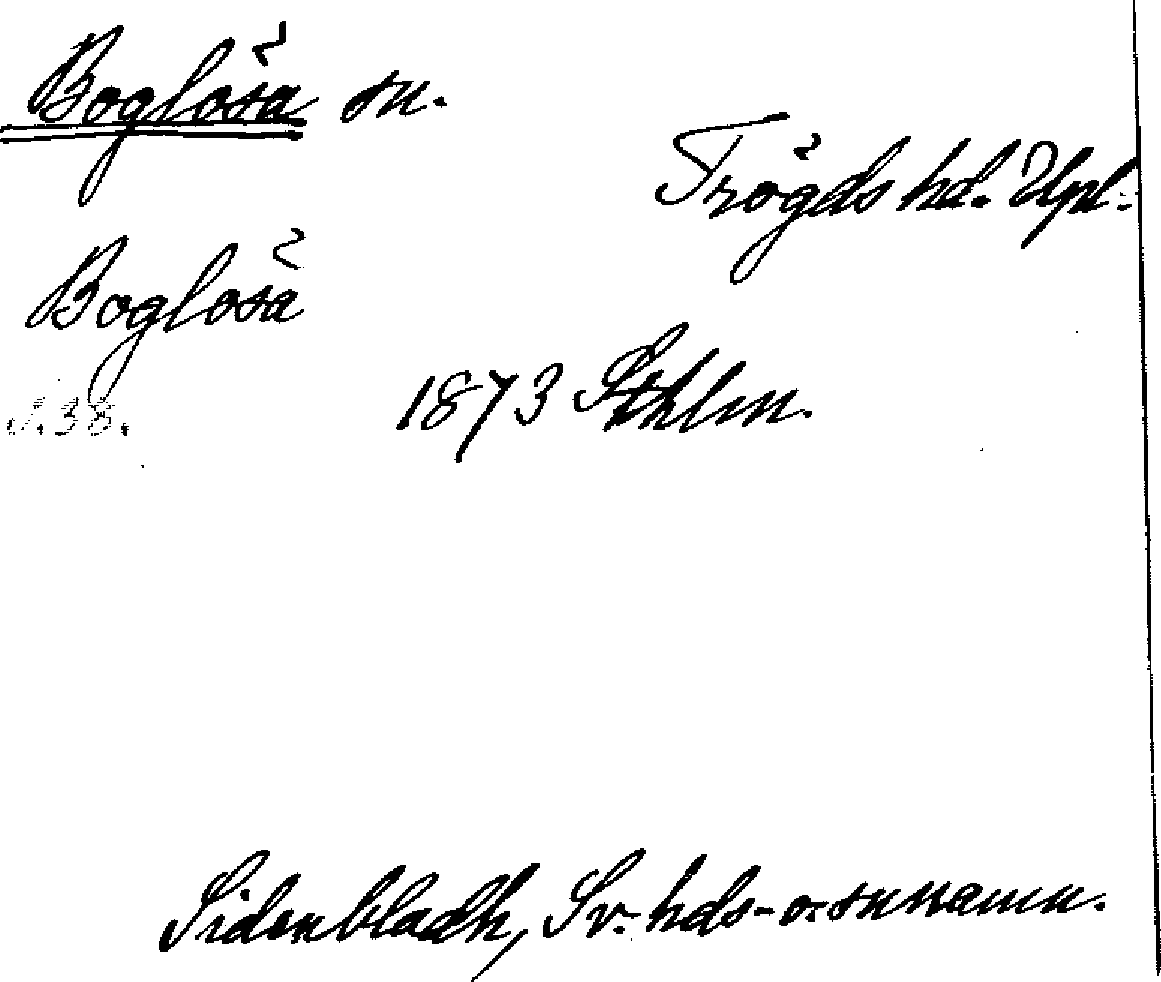 Boglösa sn.
Trögds hd. Upl.
Boglösa
s.38.
1873 Sthlm.
Sidenbladh, Sv. hds- o. snnamn.